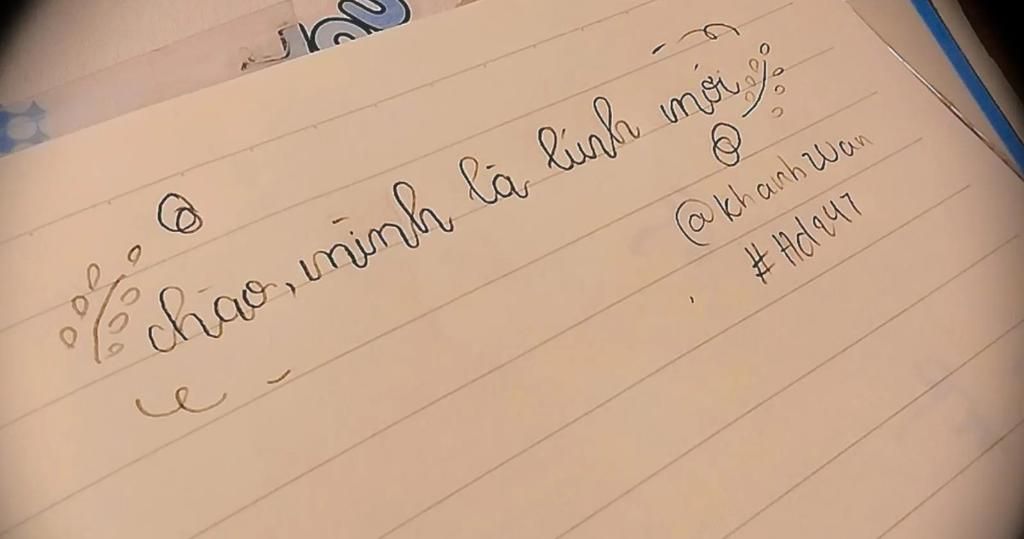 chào, mình là lính mới
@khanhwan
#Hdq47